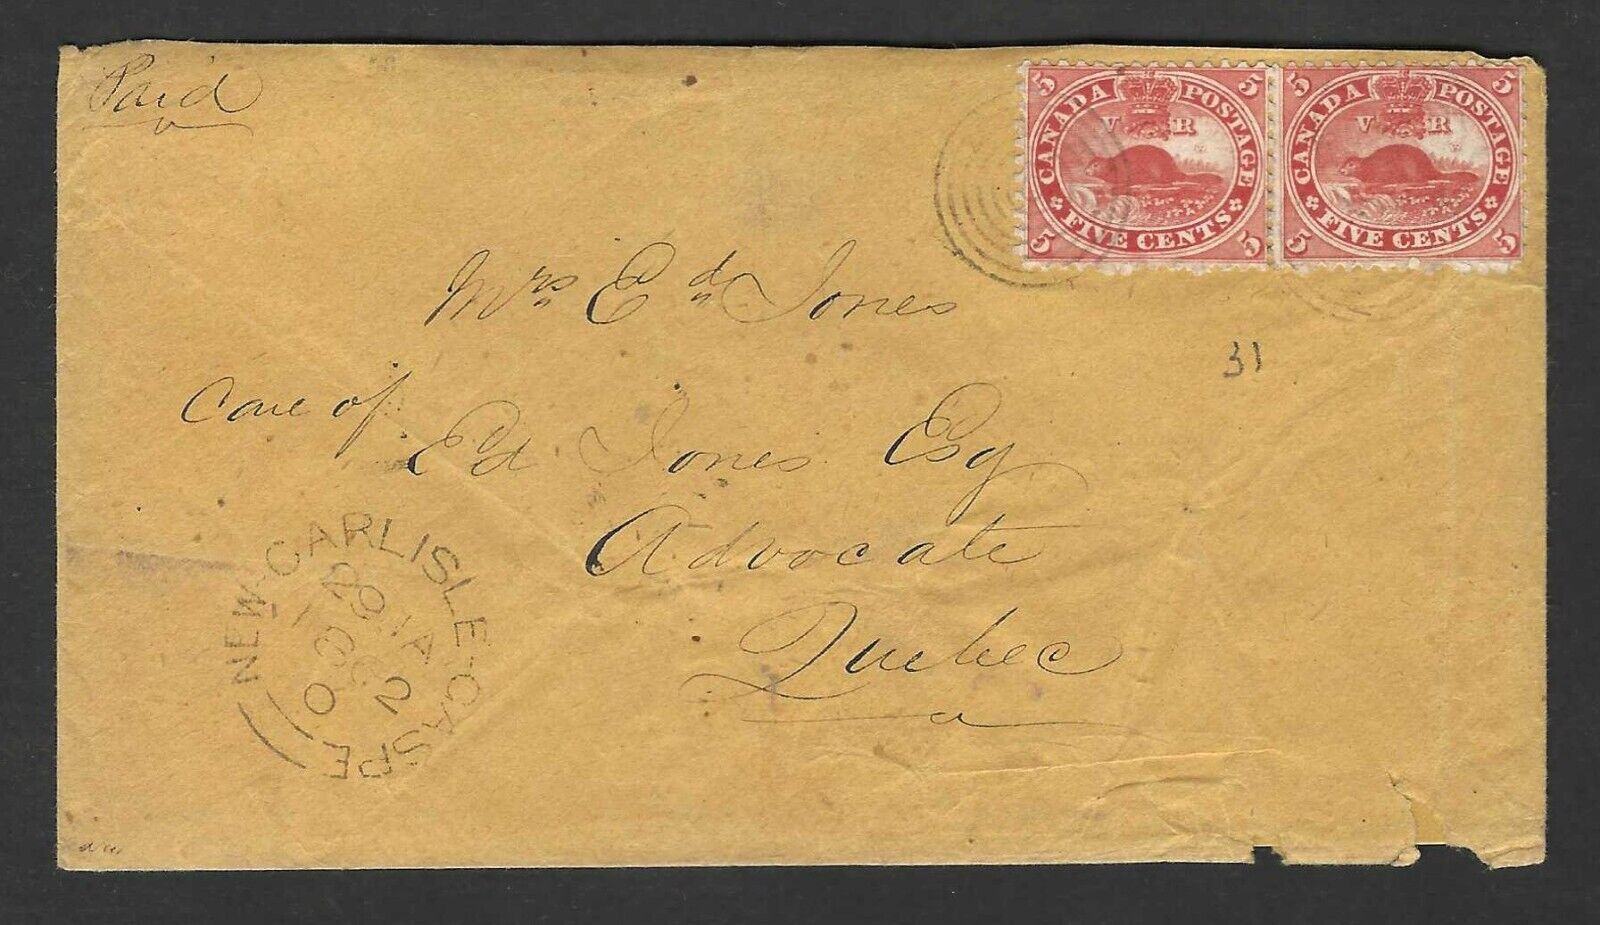 Paid
5 5
CANADA POSTAGE
V R
FIVE CENTS
5 5
5 5
CANADA POSTAGE
V R
FIVE CENTS
5 5
Mrs Ed Jones
31
Care of
Ed Jones Esq
Advocate
Quebec
NEW-CARLISLE-GASPE